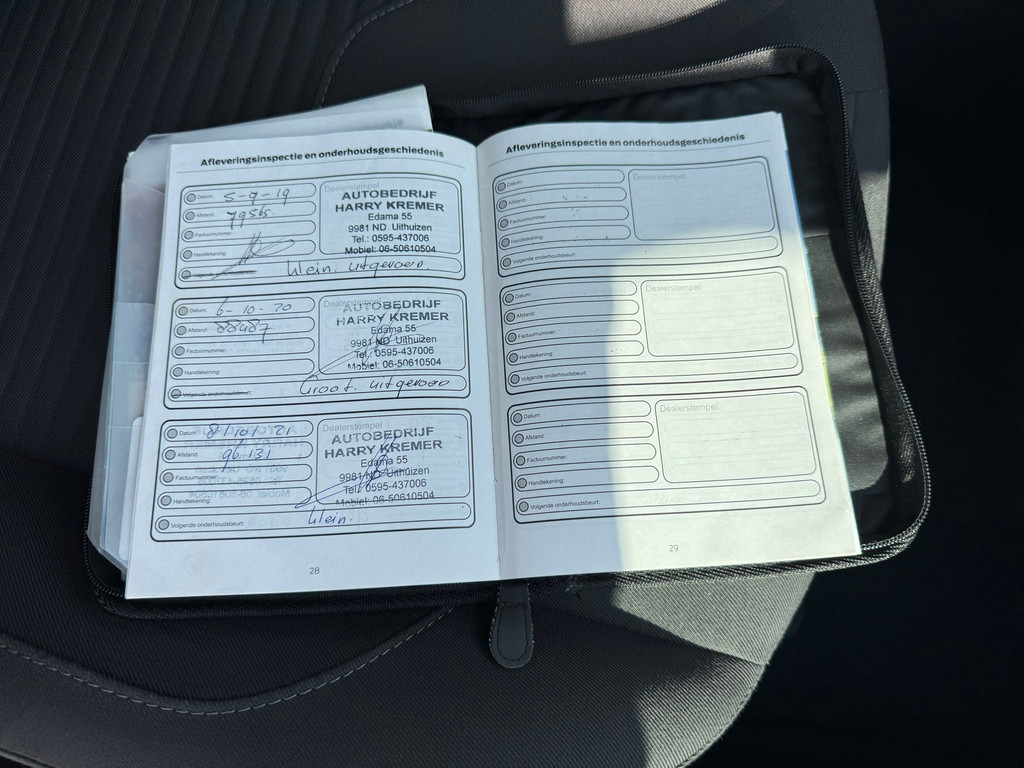 Afleveringsinspectie en onderhoudsgeschiedenis
Datum: 5-9-19
Afstand: 79565
Factuurnummer:
Handtekening:
Volgende onderhoudsbeurt: Klein. uitgevoerd.
Dealerstempel
AUTOBEDRIJF
HARRY KREMER
Edama 55
9981 ND Uithuizen
Tel.: 0595-437006
Mobiel: 06-50610504
Datum: 6-10-20
Afstand: 88487
Factuurnummer:
Handtekening:
Volgende onderhoudsbeurt: Groot. uitgevoerd
Dealerstempel
AUTOBEDRIJF
HARRY KREMER
Edama 55
9981 ND Uithuizen
Tel.: 0595-437006
Mobiel: 06-50610504
Datum:
Afstand: 96.131
Factuurnummer:
Handtekening:
Volgende onderhoudsbeurt: Klein.
Dealerstempel
AUTOBEDRIJF
HARRY KREMER
Edama 55
9981 ND Uithuizen
Tel.: 0595-437006
Mobiel: 06-50610504
28
Afleveringsinspectie en onderhoudsgeschiedenis
Datum:
Afstand:
Factuurnummer:
Handtekening:
Volgende onderhoudsbeurt:
Dealerstempel
Datum:
Afstand:
Factuurnummer:
Handtekening:
Volgende onderhoudsbeurt:
Dealerstempel
Datum:
Afstand:
Factuurnummer:
Handtekening:
Volgende onderhoudsbeurt:
Dealerstempel
29